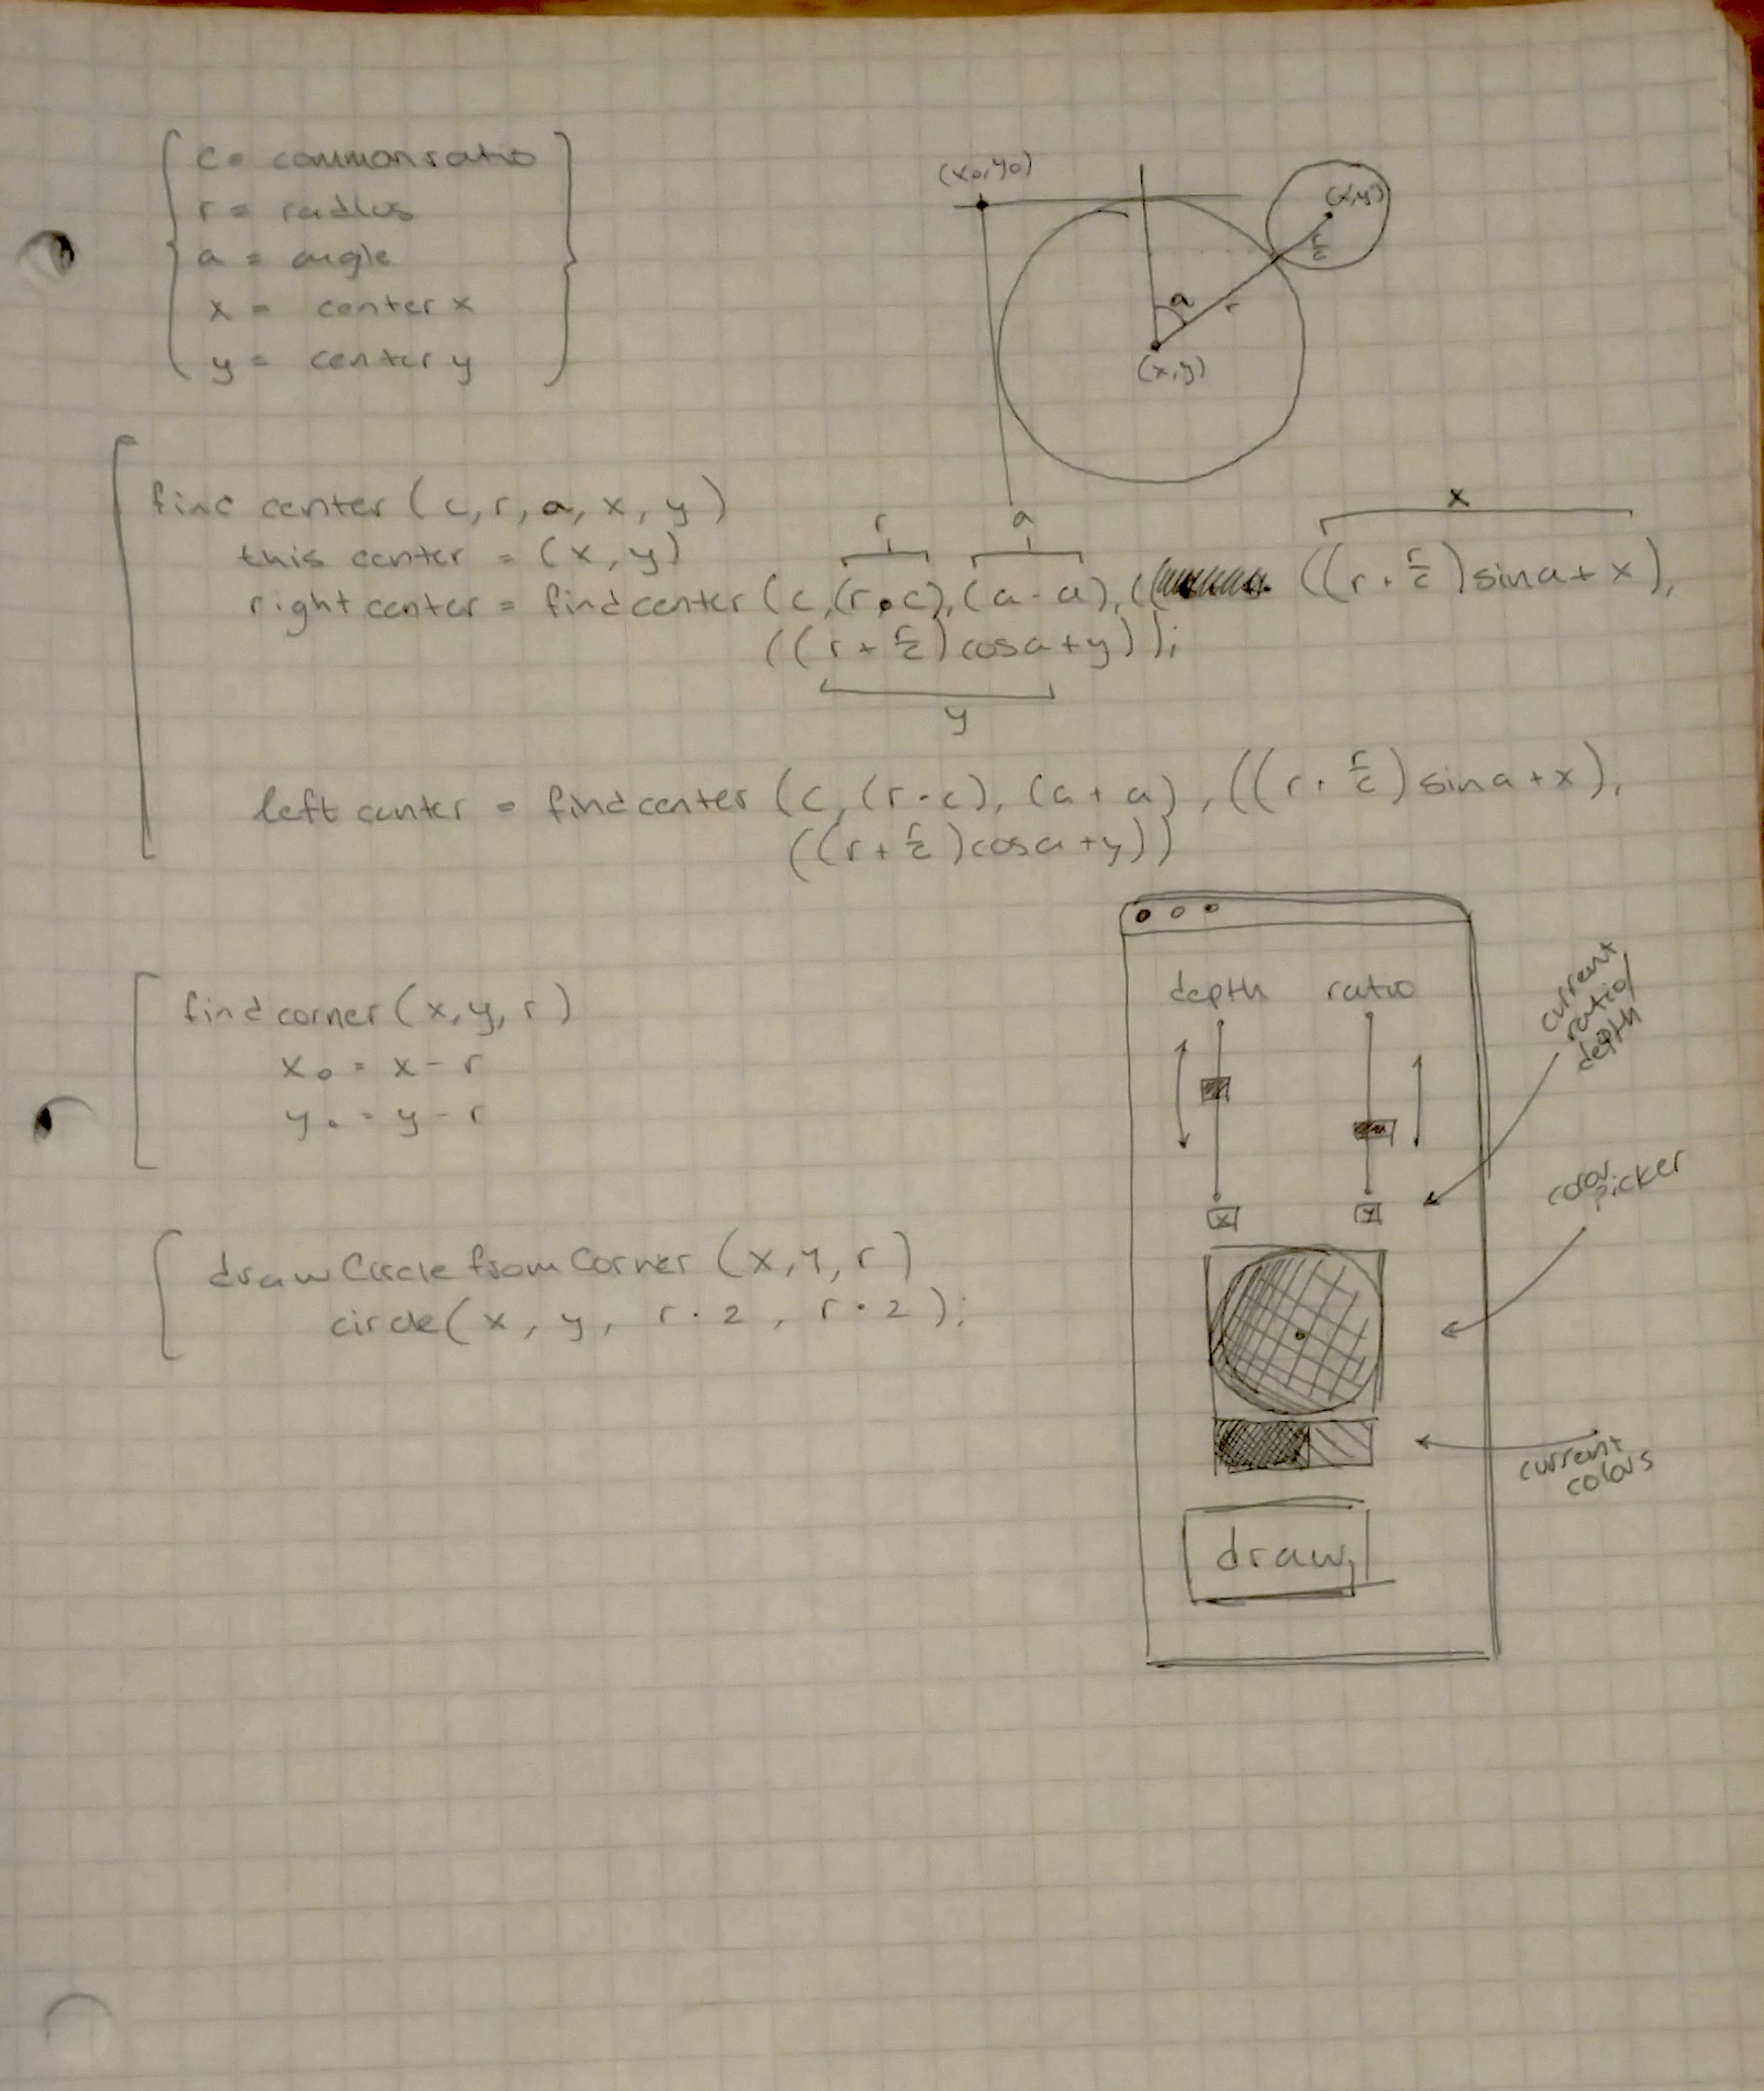 c = common ratio
r = radius
a = angle
x = center x
y = center y
(x₀,y₀)
(x',y')
r/c
a
r
(x,y)
find center (c, r, a, x, y)
this center = (x, y)
r
a
x
right center = findcenter (c, (r·c), (a-a), ((r+r/c)sina+x),
((r+r/c)cosa+y));
y
left center = findcenter (c, (r·c), (a+a), ((r+r/c)sina+x),
((r+r/c)cosa+y))
find corner (x, y, r)
x₀ = x - r
y₀ = y - r
draw Circle from Corner (x, y, r)
circle( x, y, r·2, r·2 );
depth ratio
current
ratio/
depth
x y
color
picker
current
colors
draw